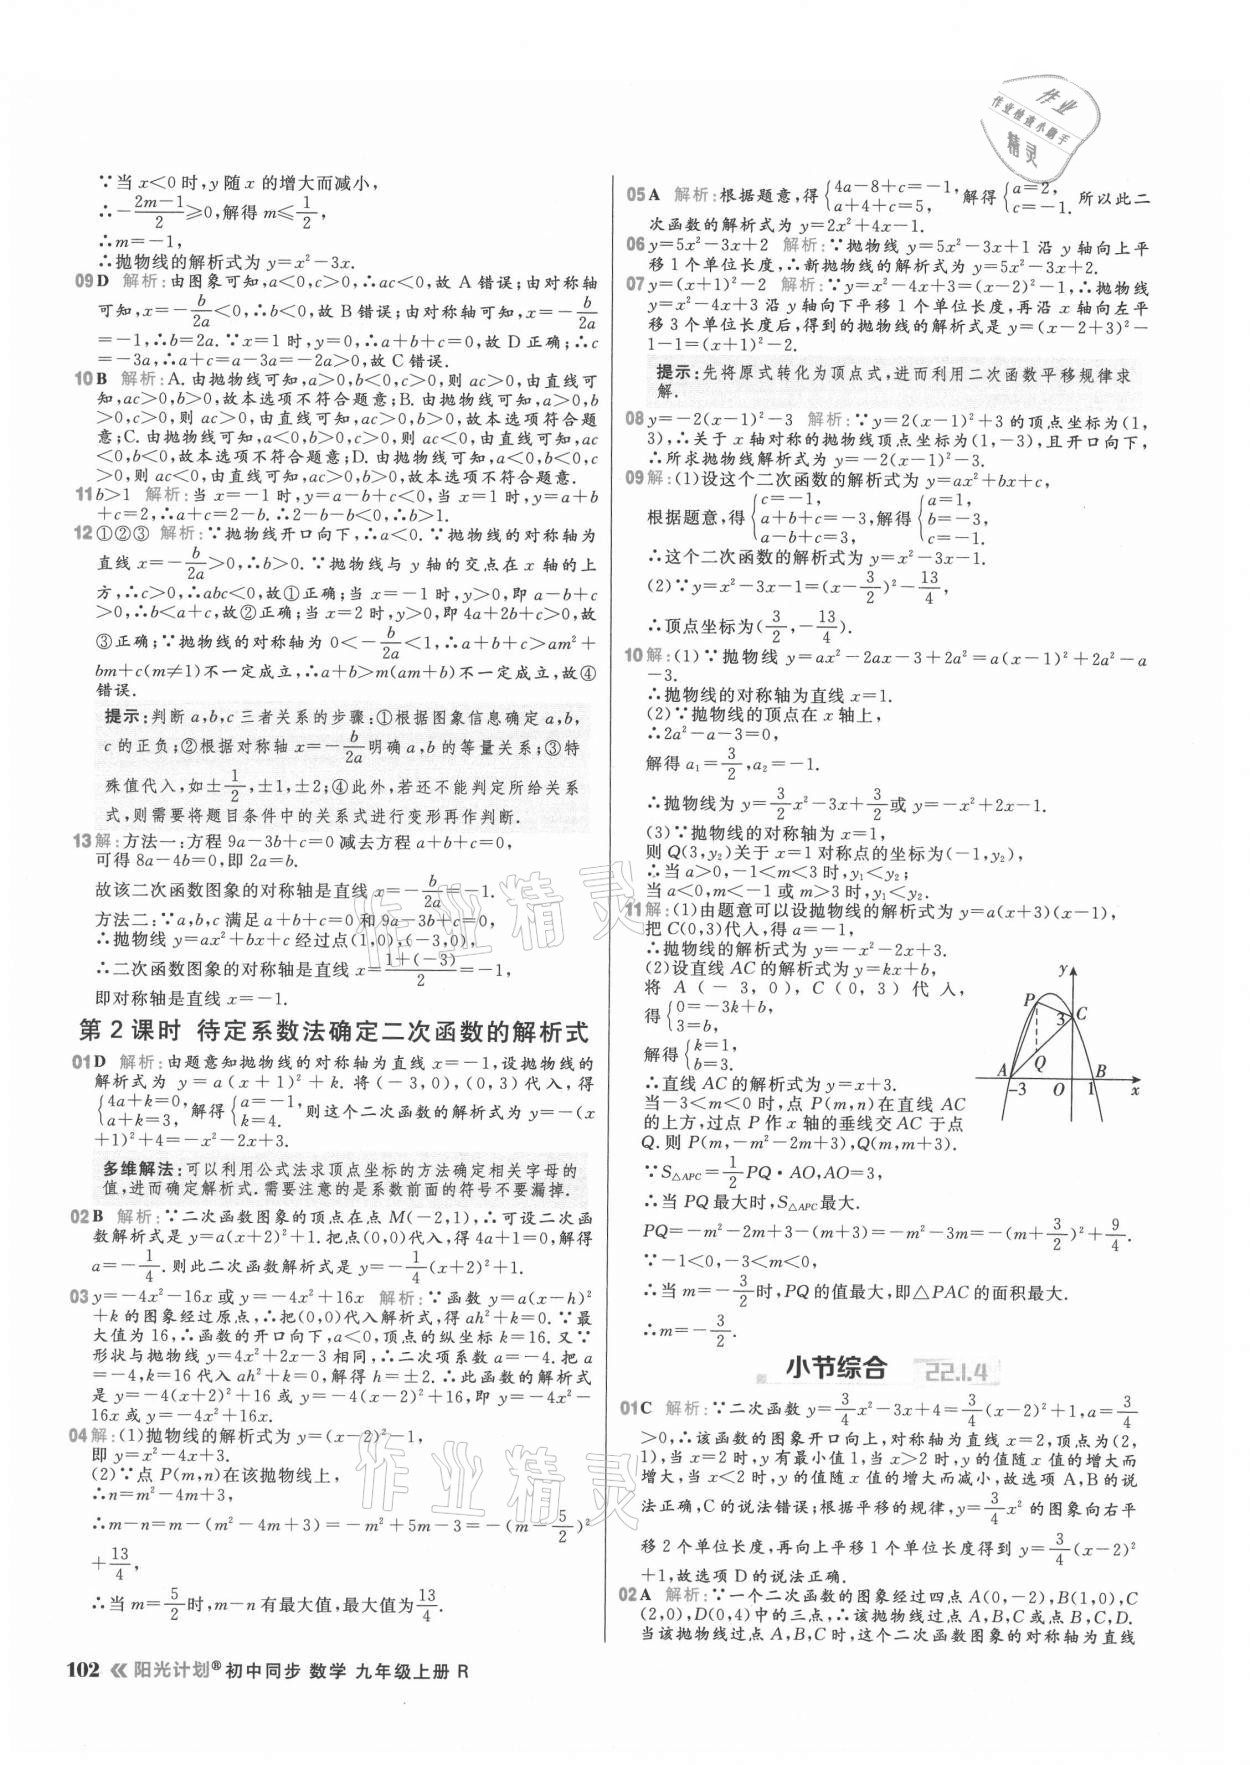 ∵当 x<0 时,y 随 x 的增大而减小,
∴-\frac{2m-1}{2}≥0,解得 m≤\frac{1}{2},
∴m=-1,
∴抛物线的解析式为 y=x²-3x.
09 D 解析:由图象可知,a<0,c>0,∴ac<0,故 A 错误;由对称轴
可知,x=-\frac{b}{2a}<0,∴b<0,故 B 错误;由对称轴可知,x=-\frac{b}{2a}
=-1,∴b=2a.∵x=1 时,y=0,∴a+b+c=0,故 D 正确;∴c
=-3a,∴a+c=a-3a=-2a>0,故 C 错误.
10 B 解析:A.由抛物线可知,a>0,b<0,c>0,则 ac>0,由直线可
知,ac>0,b>0,故本选项不符合题意;B.由抛物线可知,a>0,b
>0,c>0,则 ac>0,由直线可知,ac>0,b>0,故本选项符合题
意;C.由抛物线可知,a<0,b>0,c>0,则 ac<0,由直线可知,ac
<0,b<0,故本选项不符合题意;D.由抛物线可知,a<0,b<0,c
>0,则 ac<0,由直线可知,ac>0,b>0,故本选项不符合题意.
11 b>1 解析:当 x=-1 时,y=a-b+c<0,当 x=1 时,y=a+b
+c=2,∴a+c=2-b.∴2-b-b<0,∴b>1.
12 ①②③ 解析:∵抛物线开口向下,∴a<0.∵抛物线的对称轴为
直线 x=-\frac{b}{2a}>0,∴b>0.∵抛物线与 y 轴的交点在 x 轴的上
方,∴c>0,∴abc<0,故①正确;当 x=-1 时,y>0,即 a-b+c
>0,∴b<a+c,故②正确;当 x=2 时,y>0,即 4a+2b+c>0,故
③正确;∵抛物线的对称轴为 0<-\frac{b}{2a}<1,∴a+b+c>am²+
bm+c(m≠1)不一定成立,∴a+b>m(am+b)不一定成立,故④
错误.
提示:判断 a,b,c 三者关系的步骤:①根据图象信息确定 a,b,
c 的正负;②根据对称轴 x=-\frac{b}{2a}明确 a,b 的等量关系;③特
殊值代入,如±\frac{1}{2},±1,±2;④此外,若还不能判定所给关系
式,则需要将题目条件中的关系式进行变形再作判断.
13 解:方法一:方程 9a-3b+c=0 减去方程 a+b+c=0,
可得 8a-4b=0,即 2a=b.
故该二次函数图象的对称轴是直线 x=-\frac{b}{2a}=-1.
方法二:∵a,b,c 满足 a+b+c=0 和 9a-3b+c=0,
∴抛物线 y=ax²+bx+c 经过点(1,0),(-3,0),
∴二次函数图象的对称轴是直线 x=\frac{1+(-3)}{2}=-1,
即对称轴是直线 x=-1.
第 2 课时 待定系数法确定二次函数的解析式
01 D 解析:由题意知抛物线的对称轴为直线 x=-1,设抛物线的
解析式为 y=a(x+1)²+k.将(-3,0),(0,3)代入,得
{4a+k=0, a+k=3, 解得{a=-1, k=4. 则这个二次函数的解析式为 y=-(x
+1)²+4=-x²-2x+3.
多维解法:可以利用公式法求顶点坐标的方法确定相关字母的
值,进而确定解析式.需要注意的是系数前面的符号不要漏掉.
02 B 解析:∵二次函数图象的顶点在点 M(-2,1),∴可设二次函
数解析式是 y=a(x+2)²+1.把点(0,0)代入,得 4a+1=0,解得
a=-\frac{1}{4}.则此二次函数解析式是 y=-\frac{1}{4}(x+2)²+1.
03 y=-4x²-16x 或 y=-4x²+16x 解析:∵函数 y=a(x-h)²
+k 的图象经过原点,∴把(0,0)代入解析式,得 ah²+k=0.∵最
大值为 16,∴函数的开口向下,a<0,顶点的纵坐标 k=16.又∵
形状与抛物线 y=4x²+2x-3 相同,∴二次项系数 a=-4.把 a
=-4,k=16 代入 ah²+k=0,解得 h=±2.∴此函数的解析式
是 y=-4(x+2)²+16 或 y=-4(x-2)²+16,即 y=-4x²-
16x 或 y=-4x²+16x.
04 解:(1)抛物线的解析式为 y=(x-2)²-1,
即 y=x²-4x+3.
(2)∵点 P(m,n)在该抛物线上,
∴n=m²-4m+3,
∴m-n=m-(m²-4m+3)=-m²+5m-3=-(m-\frac{5}{2})²
+\frac{13}{4},
∴当 m=\frac{5}{2}时,m-n 有最大值,最大值为\frac{13}{4}.
102 《 阳光计划® 初中同步 数学 九年级上册 R
作业
作业检查小助手
精灵
05 A 解析:根据题意,得{4a-8+c=-1, a+4+c=5, 解得{a=2, c=-1. 所以此二
次函数的解析式为 y=2x²+4x-1.
06 y=5x²-3x+2 解析:∵抛物线 y=5x²-3x+1 沿 y 轴向上平
移 1 个单位长度,∴新抛物线的解析式为 y=5x²-3x+2.
07 y=(x+1)²-2 解析:∵y=x²-4x+3=(x-2)²-1,∴抛物线
y=x²-4x+3 沿 y 轴向下平移 1 个单位长度,再沿 x 轴向左平
移 3 个单位长度后,得到的抛物线的解析式是 y=(x-2+3)²-
1-1=(x+1)²-2.
提示:先将原式转化为顶点式,进而利用二次函数平移规律求
解.
08 y=-2(x-1)²-3 解析:∵y=2(x-1)²+3 的顶点坐标为(1,
3),∴关于 x 轴对称的抛物线顶点坐标为(1,-3),且开口向下,
∴所求抛物线解析式为 y=-2(x-1)²-3.
09 解:(1)设这个二次函数的解析式为 y=ax²+bx+c,
根据题意,得{c=-1, a+b+c=-3, a-b+c=3, 解得{a=1, b=-3, c=-1.
∴这个二次函数的解析式为 y=x²-3x-1.
(2)∵y=x²-3x-1=(x-\frac{3}{2})²-\frac{13}{4},
∴顶点坐标为(\frac{3}{2},-\frac{13}{4}).
10 解:(1)∵抛物线 y=ax²-2ax-3+2a²=a(x-1)²+2a²-a
-3.
∴抛物线的对称轴为直线 x=1.
(2)∵抛物线的顶点在 x 轴上,
∴2a²-a-3=0,
解得 a₁=\frac{3}{2},a₂=-1.
∴抛物线为 y=\frac{3}{2}x²-3x+\frac{3}{2}或 y=-x²+2x-1.
(3)∵抛物线的对称轴为 x=1,
则 Q(3,y₂)关于 x=1 对称点的坐标为(-1,y₂),
∴当 a>0,-1<m<3 时,y₁<y₂;
当 a<0,m<-1 或 m>3 时,y₁<y₂.
11 解:(1)由题意可以设抛物线的解析式为 y=a(x+3)(x-1),
把 C(0,3)代入,得 a=-1,
∴抛物线的解析式为 y=-x²-2x+3.
(2)设直线 AC 的解析式为 y=kx+b,
将 A(-3,0),C(0,3)代入,
得{0=-3k+b, 3=b,
解得{k=1, b=3.
∴直线 AC 的解析式为 y=x+3.
当-3<m<0 时,点 P(m,n)在直线 AC
的上方,过点 P 作 x 轴的垂线交 AC 于点
Q.则 P(m,-m²-2m+3),Q(m,m+3).
y
P
3
C
A
Q
B
-3
O
1
x
∵S△APC=\frac{1}{2}PQ·AO,AO=3,
∴当 PQ 最大时,S△APC最大.
PQ=-m²-2m+3-(m+3)=-m²-3m=-(m+\frac{3}{2})²+\frac{9}{4}.
∵-1<0,-3<m<0,
∴当 m=-\frac{3}{2}时,PQ 的值最大,即△PAC 的面积最大.
∴m=-\frac{3}{2}.
小节综合 22.1.4
01 C 解析:∵二次函数 y=\frac{3}{4}x²-3x+4=\frac{3}{4}(x-2)²+1,a=\frac{3}{4}
>0,∴该函数的图象开口向上,对称轴为直线 x=2,顶点为(2,
1),当 x=2 时,y 有最小值 1,当 x>2 时,y 的值随 x 值的增大而
增大,当 x<2 时,y 的值随 x 值的增大而减小,故选项 A,B 的说
法正确,C 的说法错误;根据平移的规律,y=\frac{3}{4}x² 的图象向右平
移 2 个单位长度,再向上平移 1 个单位长度得到 y=\frac{3}{4}(x-2)²
+1,故选项 D 的说法正确.
02 A 解析:∵一个二次函数的图象经过四点 A(0,-2),B(1,0),C
(2,0),D(0,4)中的三点,∴该抛物线过点 A,B,C 或点 B,C,D.
当该抛物线过点 A,B,C 时,这个二次函数图象的对称轴为直线
作业精灵
作业精灵